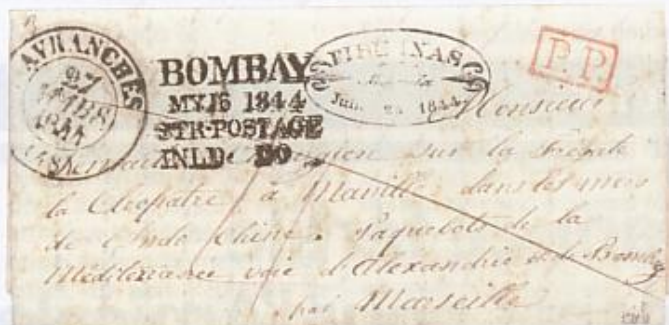 AVRANCHES
27
MARS
1844
(48)
BOMBAY
MY.16 1844
STR·POSTAGE
INLD. DO
FILIPINAS
1844
P.P.
Monsieur
sur la frégate
la Cléopatre à Manille dans les mers
de l'Indo Chine. Paquebots de la
Méditerranée voie d'Alexandrie et de Bombay
par Marseille